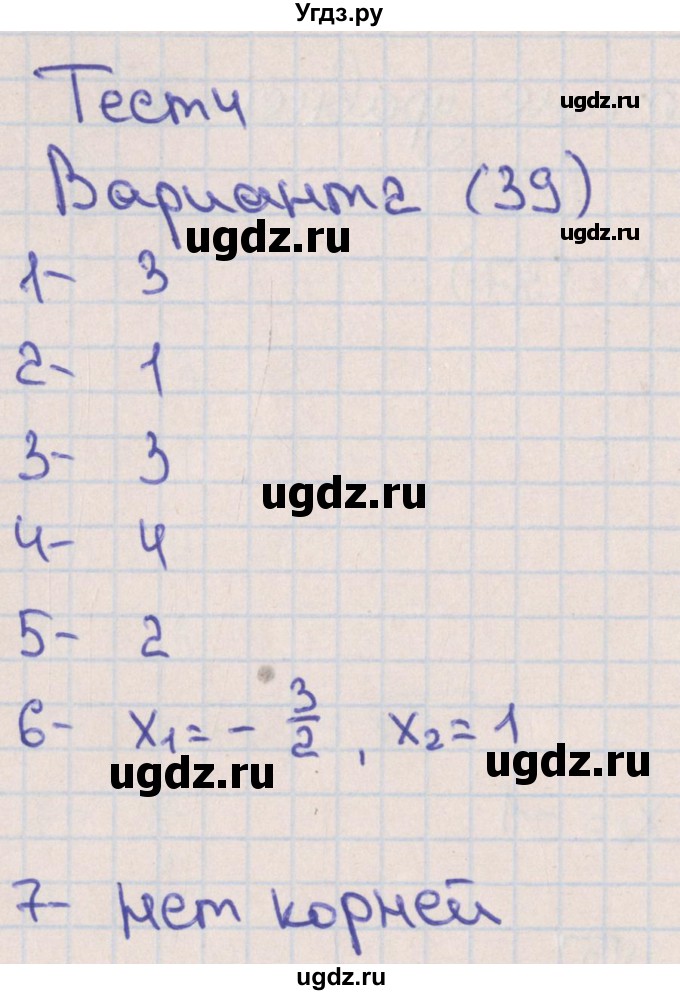 Угдз.ру
Тест 4
ugdz.ru
Вариант 2 (39)
ugdz.ru
ugdz.ru
1- 3
2- 1
3- 3
ugdz.ru
4- 4
5- 2
6- x₁ = - 3/2, x₂ = 1
ugdz.ru
ugdz.ru
7- нет корней
ugdz.ru